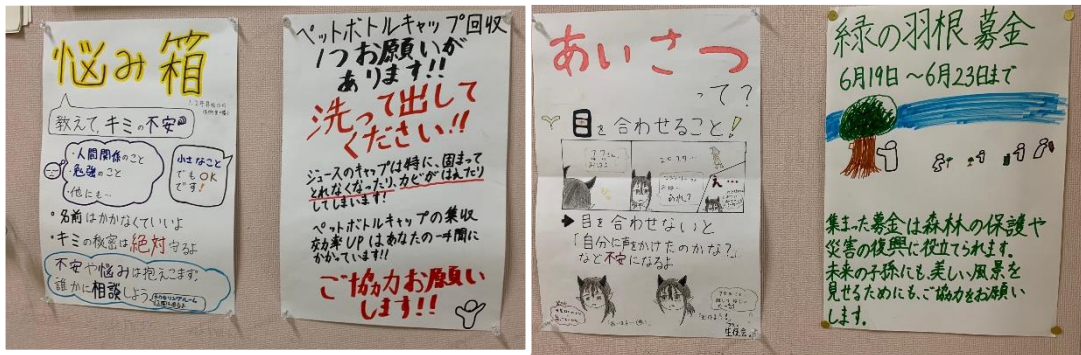 悩み箱
教えて、キミの不安
・人間関係のこと
・勉強のこと
・他にも…
小さなこと
でもOK
です!
・名前はかかなくていいよ
・キミの秘密は絶対守るよ
不安や悩みは抱えこまず、
誰かに相談しよう
ペットボトルキャップ回収
1つお願いが
あります!!
洗って出して
ください!!
ジュースのキャップは特に、固まって
とれなくなったり、カビがはえたり
してしまいます!
ペットボトルキャップの集収
効率UPはあなたの一手間に
かかっています!!
ご協力お願い
します!!
あいさつ
って?
目を合わせること!
え…
➔ 目を合わせないと
「自分に声をかけたのかな?」
など不安になるよ
生徒会
緑の羽根募金
6月19日〜6月23日まで
集まった募金は森林の保護や
災害の復興に役立てられます。
未来の子孫にも、美しい風景を
見せるためにも、ご協力をお願い
します。